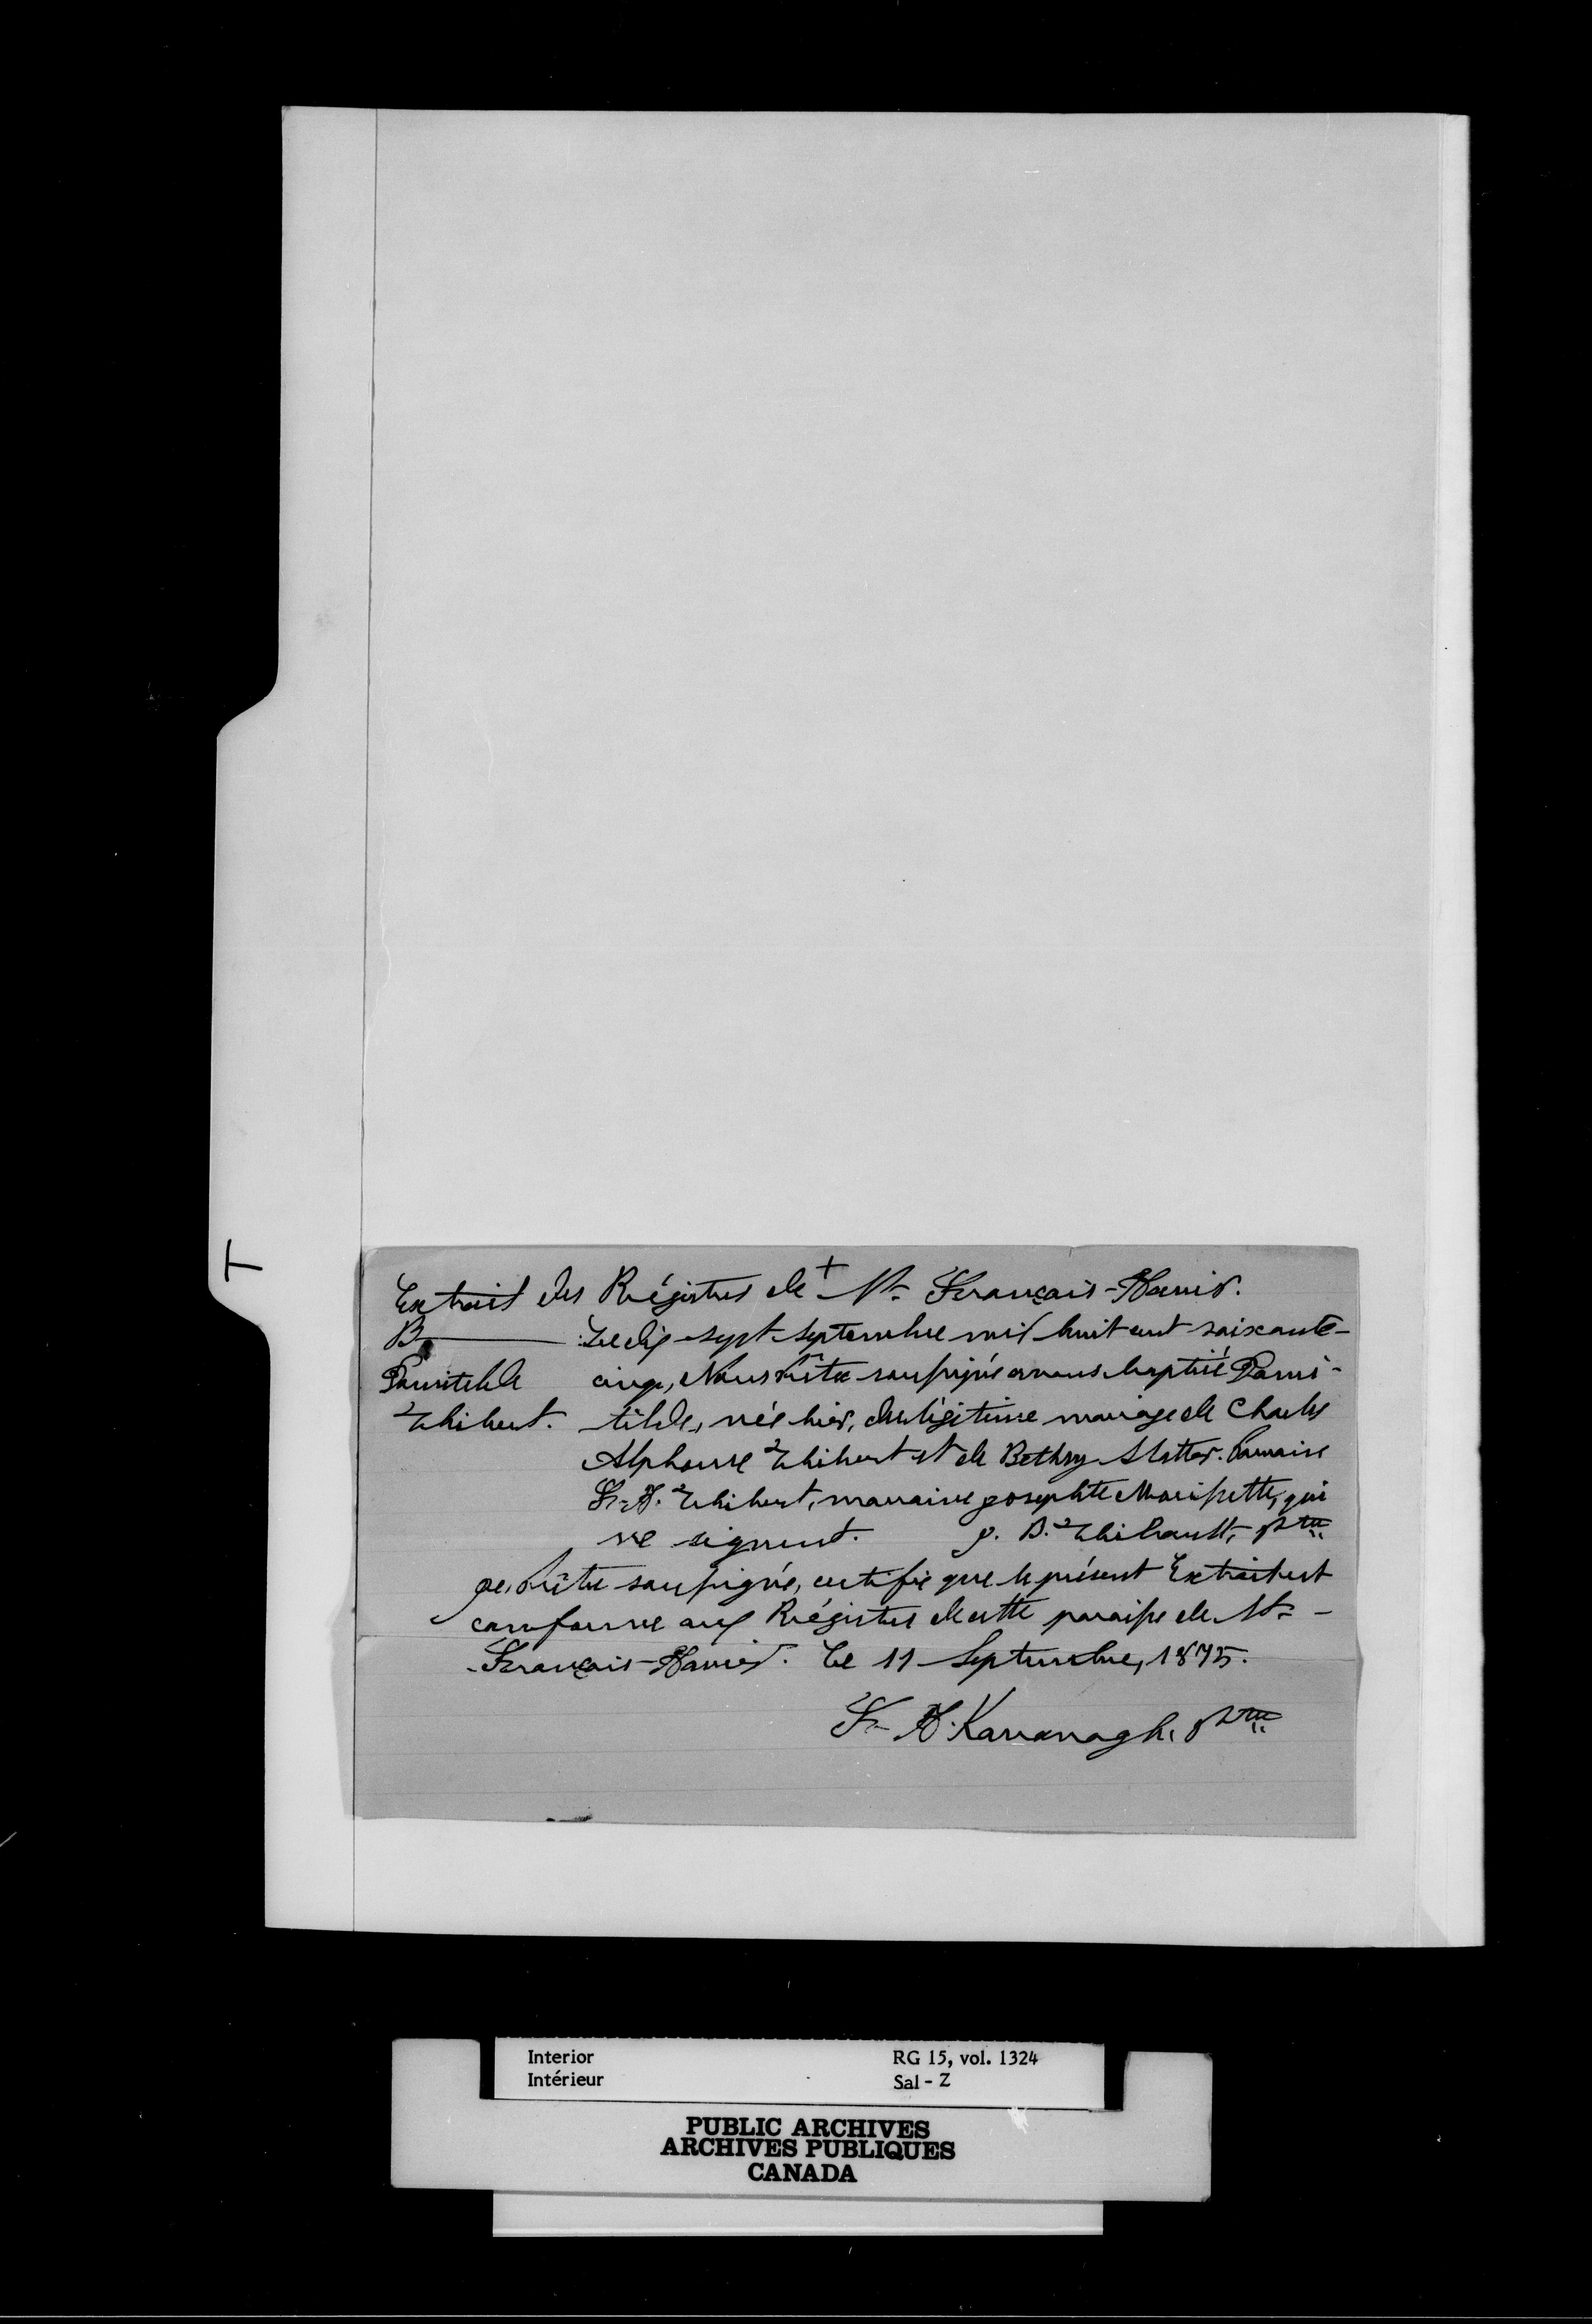 Extrait des Régistres de + St. François-Xavier.
B. Le dix-sept Septembre mil huit cent soixante-
Pamitilde cinq, Nous Ptre soussigné avons baptisé Pami-
Thibert. tilde, née hier, du légitime mariage de Charles
Alphonse Thibert et de Bethsy Slatter. Parrain
Fr. X. Thibert, marraine Josephte Morissette, qui
ne signent. J. B. Thibault, Ptre
Je, Prêtre soussigné, certifie que le présent Extrait est
conforme aux Régistres de cette paroisse de St.-
François-Xavier. Ce 11 Septembre, 1875.
F. X. Kavanagh, Ptre
T
Interior RG 15, vol. 1324
Intérieur Sal - Z
PUBLIC ARCHIVES
ARCHIVES PUBLIQUES
CANADA